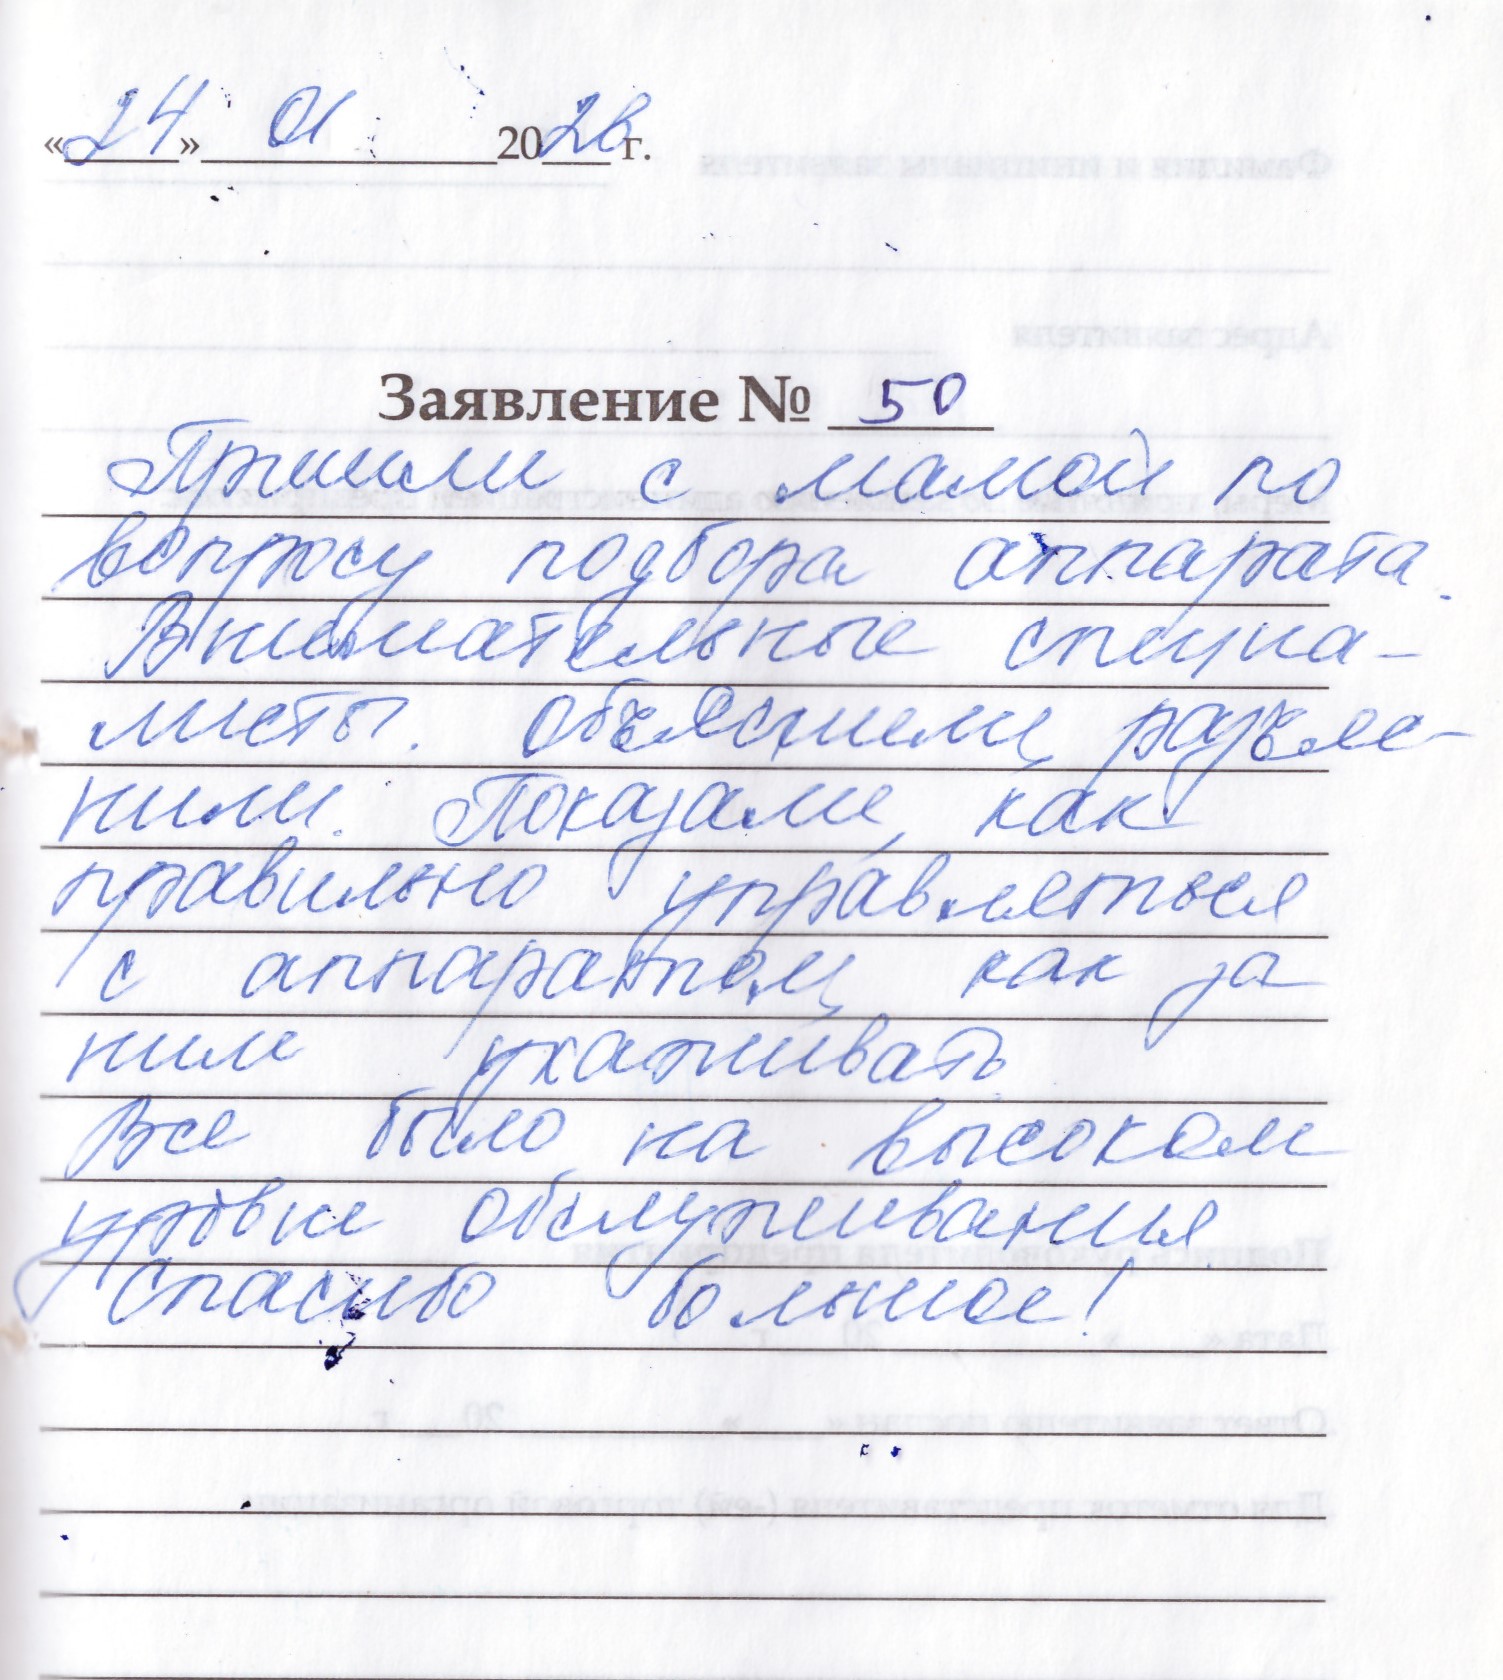 «24» 01 2026 г.
Заявление № 50
Пришли с мамой по
вопросу подбора аппарата.
Внимательные специа-
листы. объяснили, разъяс-
нили. Показали, как
правильно управляться
с аппаратом, как за
ним ухаживать
Все было на высоком
уровне обслуживания
Спасибо большое!